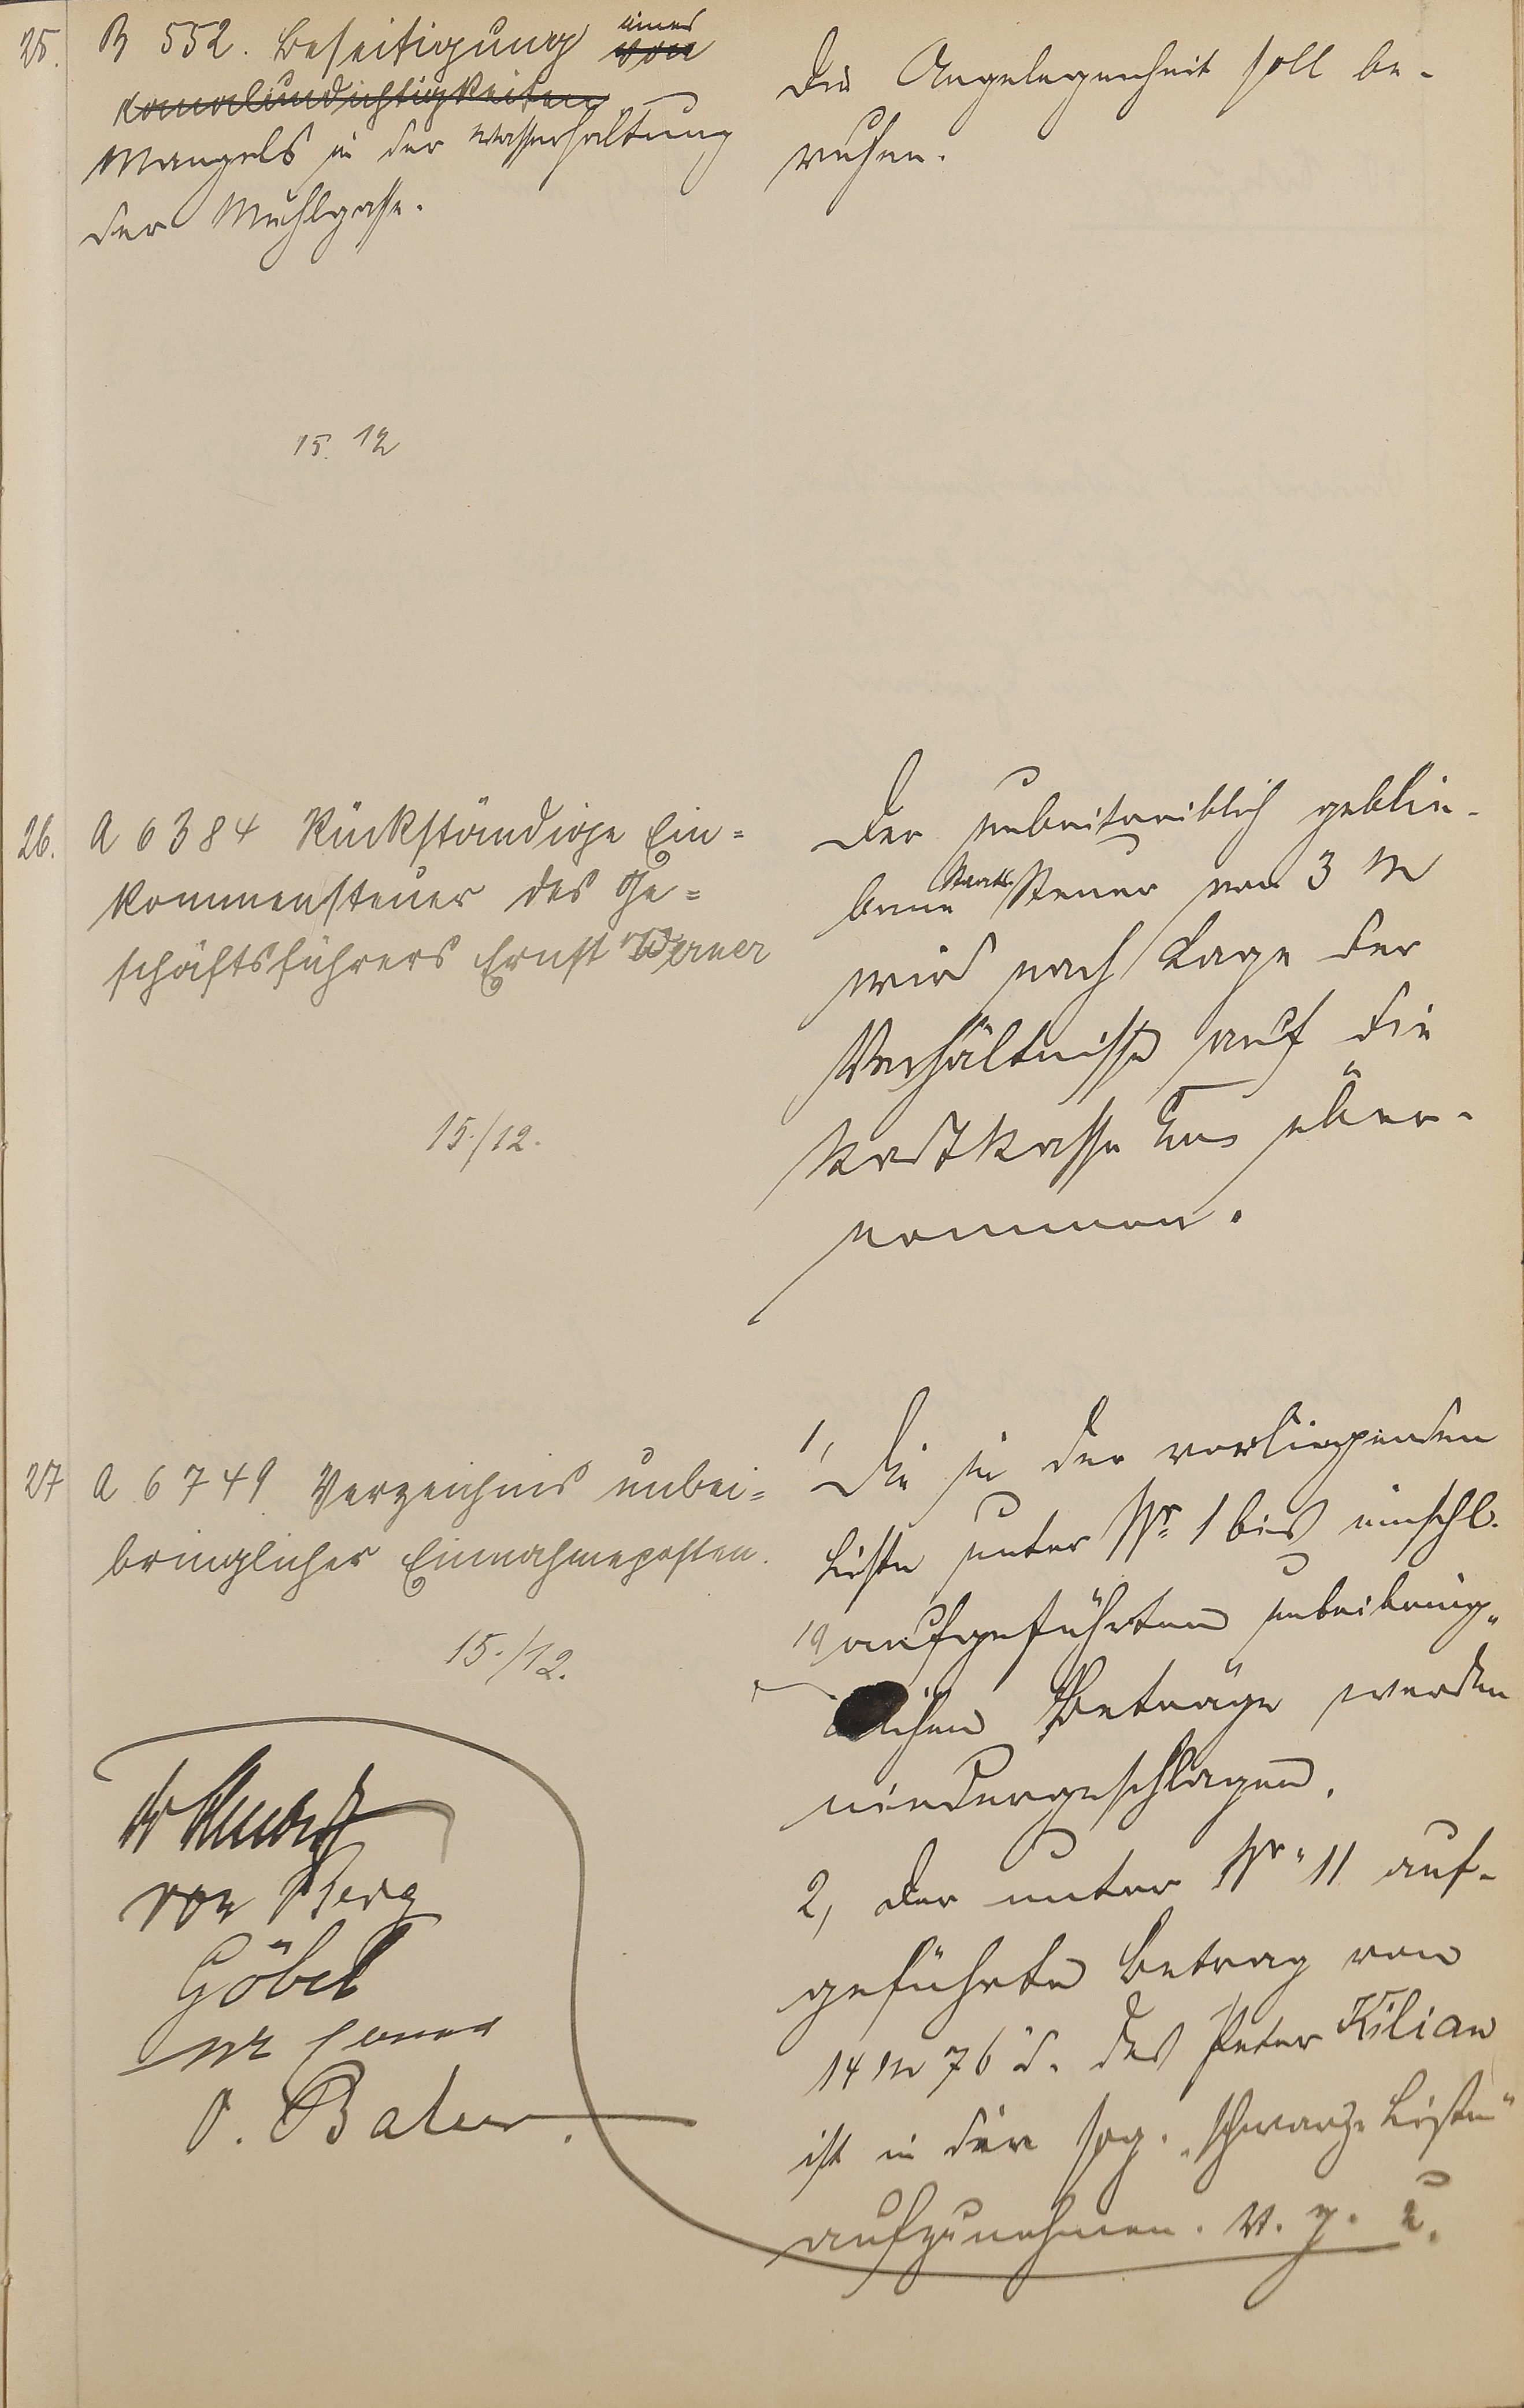 25. B 552. Beseitigung von
eines
Kanalundichtigkeiten
Mangels in der Wasserhaltung
der Mühlgasse.
Die Angelegenheit soll be-
ruhen.
15. 12
26. A 6384 Rückständige Ein=
kommensteuer des Ge=
schäftsführers Ernst Werner
15./12.
Der unbeitreiblich geblie-
bene Staats-Steuer von 3 M
wird nach Lage der
Verhältnisse auf die
Stadtkasse über-
nommen.
27 A 6749 Verzeichnis unbei=
bringlicher Einnahmeposten.
15./12.
1, Die in der vorliegenden
Liste unter Nr. 1 bis einschl.
19 aufgeführten unbeibring„
lichen Beträge werden
niedergeschlagen.
2, Der unter Nr. 11 auf-
geführte Betrag von
14 M 76 d. des Peter Kilian
ist in die sog. „schwarze Liste"
aufzunehmen. V. g. u.
von Berg
Göbel
O. Bater.